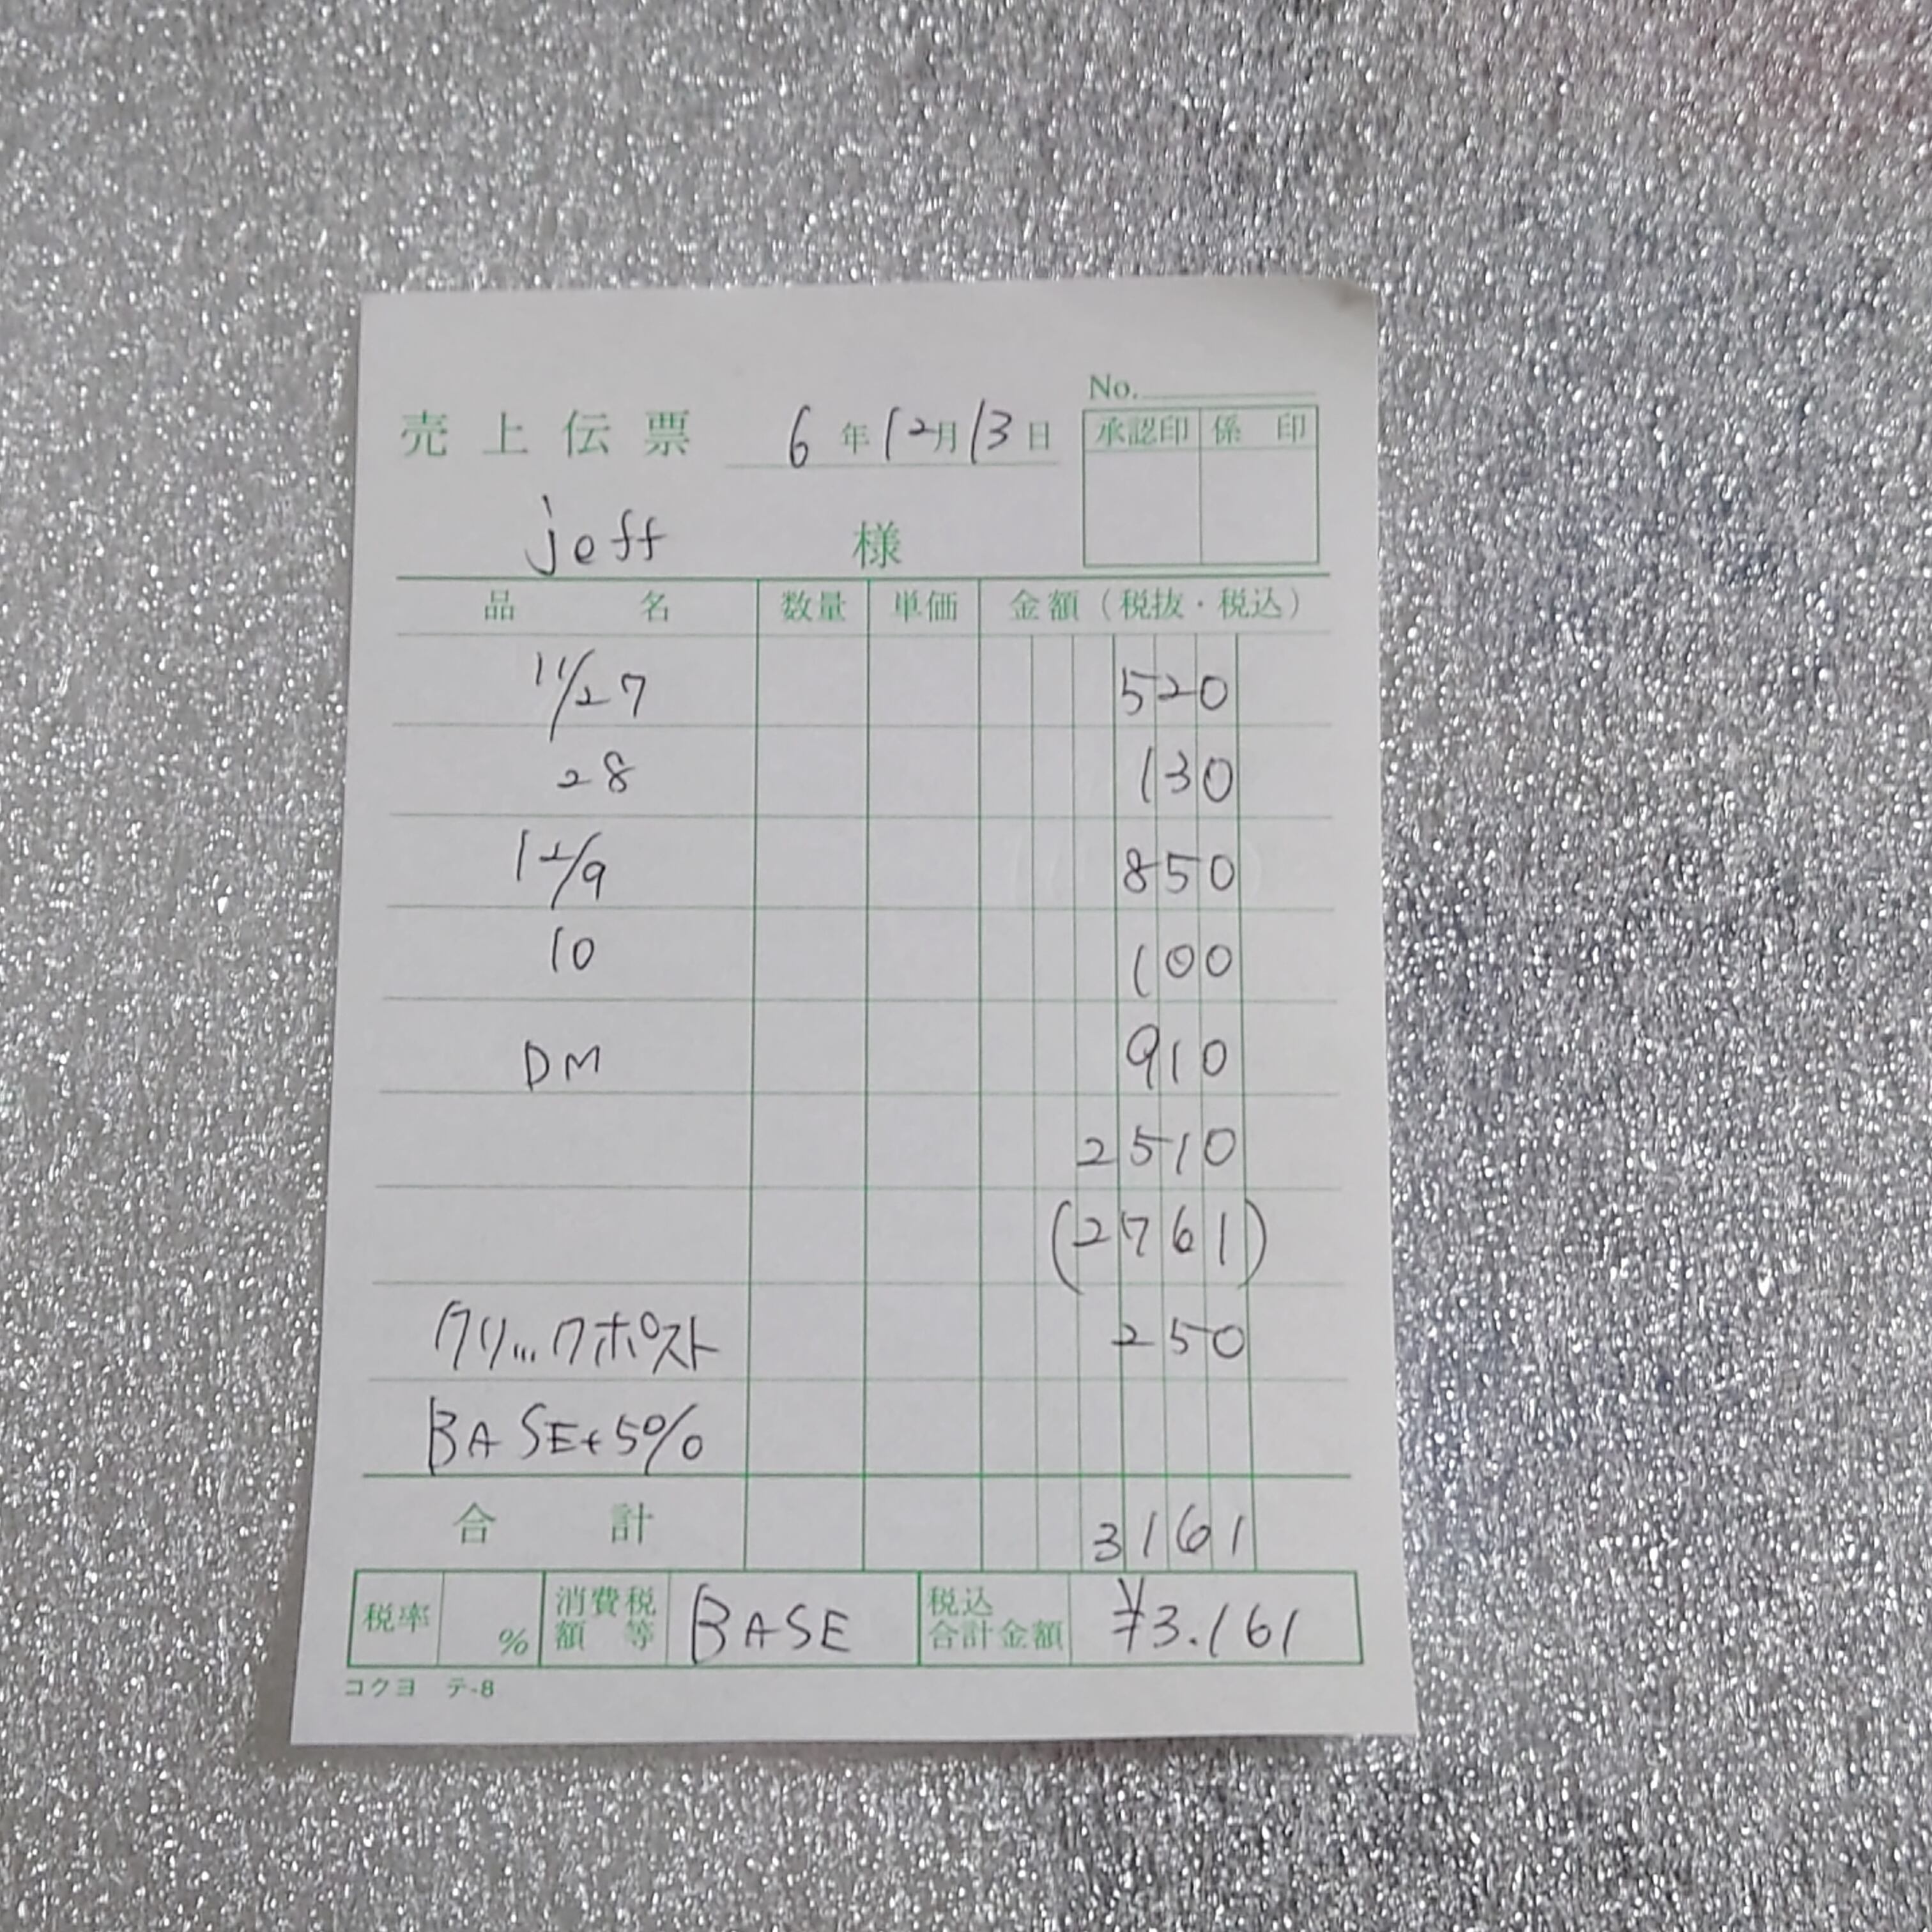 No.
売上伝票 6年12月13日
承認印 係印
jeff 様
品名 数量 単価 金額(税抜・税込)
11/27 520
28 130
12/9 850
10 100
DM 910
2510
(2761)
クリックポスト 250
BASE+5%
合計 3161
税率 % 消費税額等 BASE 税込合計金額 ¥3.161
コクヨ テ-8